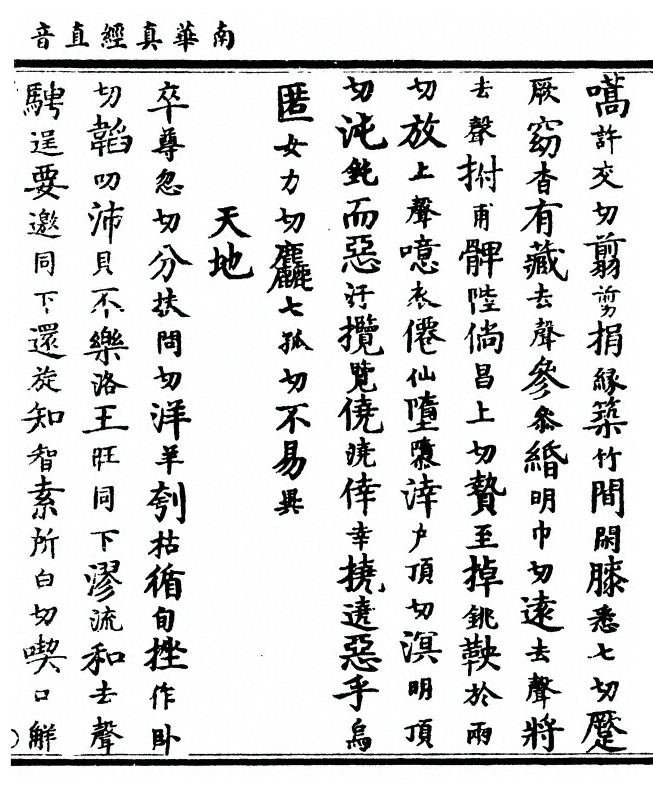 南華真經直音
嚆許交切翦剪捐緣築竹間閑膝悉七切蹷
厥窈杳有藏去聲參叅緡明巾切遠去聲將
去聲拊甫髀陛倘昌上切贄至掉銚鞅於兩
切放上聲噫衣僊仙墮隳涬户頂切溟明頂
切沌鈍而惡汙攬覽僥曉倖幸撓遶惡乎烏
匿女力切麤七孤切不易異
天地
卒尊忽切分扶問切洋羊刳枯循旬挫作卧
切韜叨沛貝不樂洛王旺同下漻流和去聲
騁逞要邀同下還旋知智素所白切喫口觧